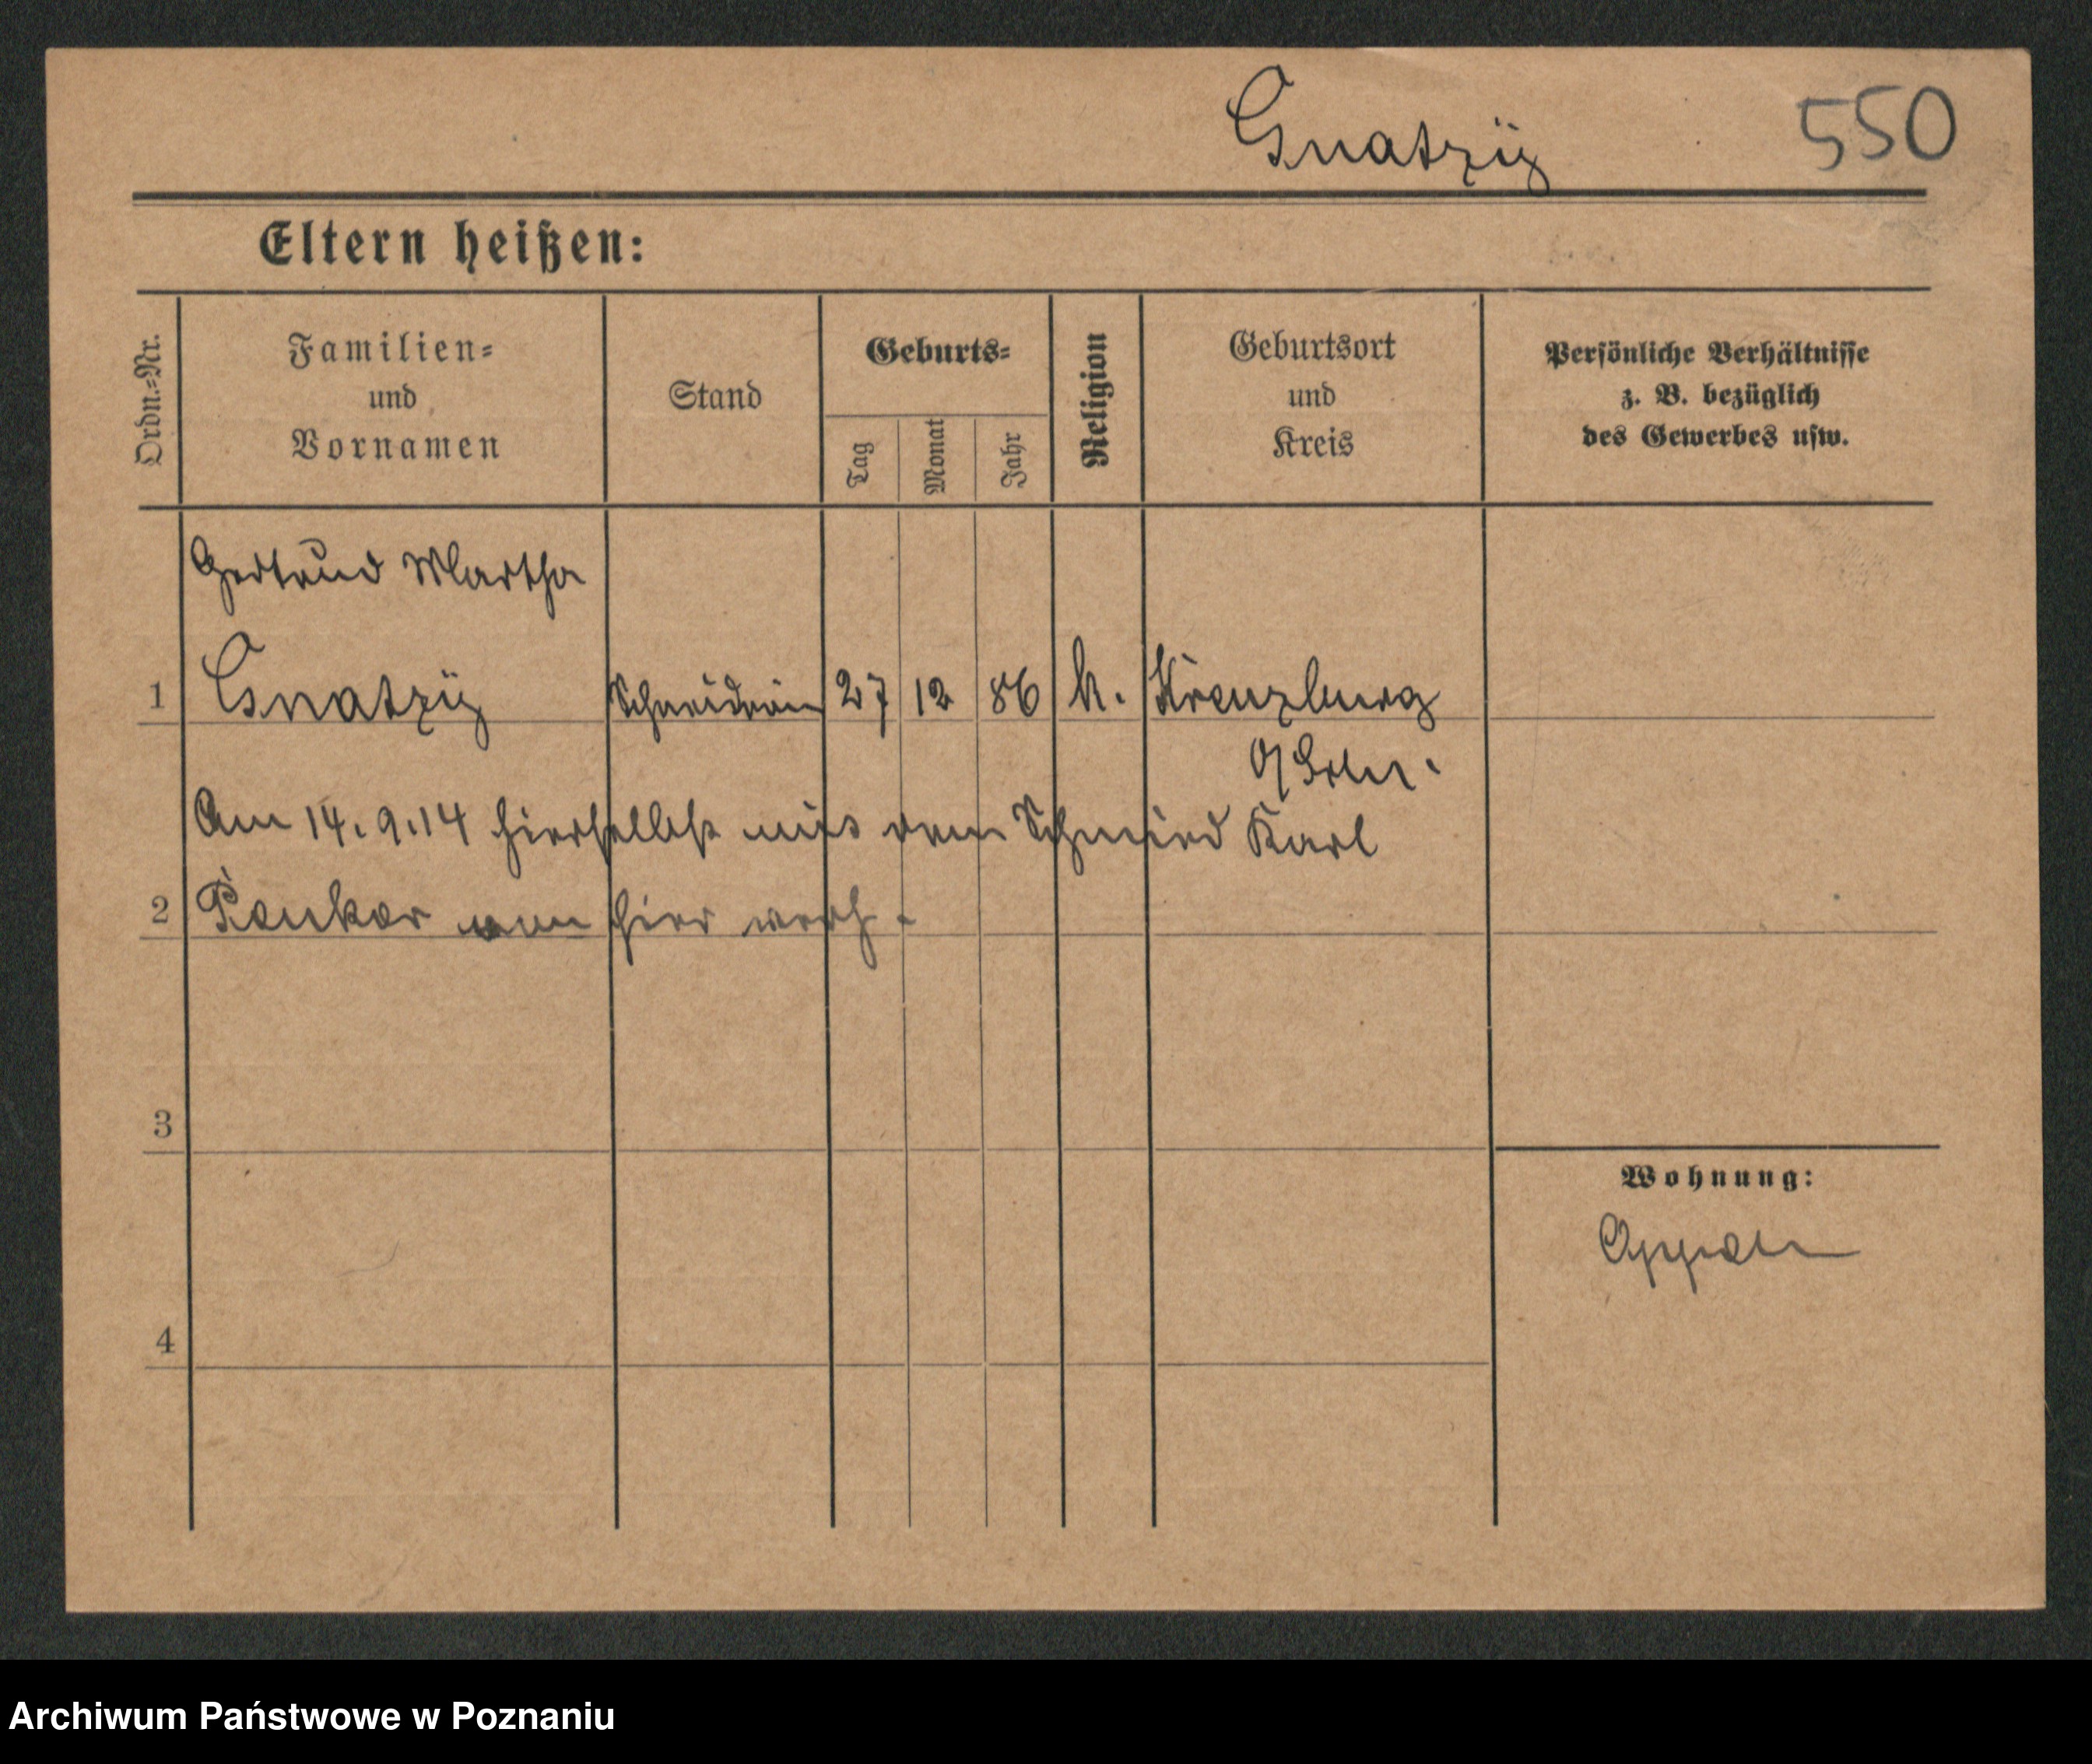 Gnatzÿ
550
Eltern heißen:
Ordn.=Nr.
Familien=
und
Vornamen
Stand
Geburts=
Tag
Monat
Jahr
Religion
Geburtsort
und
Kreis
Persönliche Verhältnisse
z. B. bezüglich
des Gewerbes usw.
Gertrud Martha
1 Gnatzÿ Schneiderin 27 12 86 k. Kreuzburg
Am 14.9.14 hierselbst mit dem Schmied Karl
2 von hier verh.
3
Wohnung:
4
Archiwum Państwowe w Poznaniu